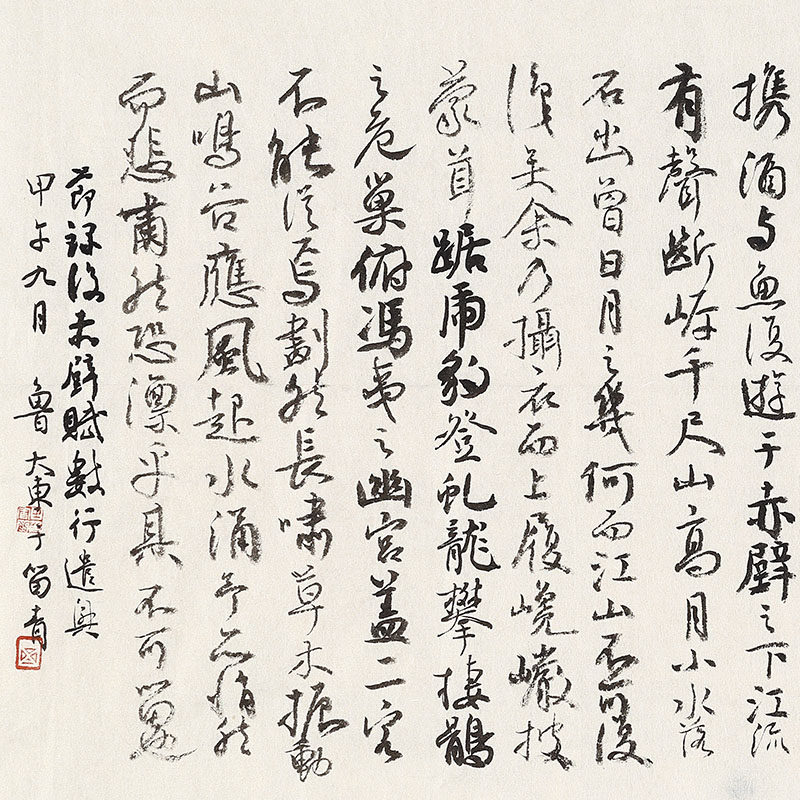 携酒与魚復遊于赤壁之下江流
有聲斷岸千尺山高月小水落
石出曾日月之幾何而江山不可復
識矣余乃攝衣而上履巉巖披
蒙茸踞虎豹登虬龍攀棲鶻
之危巢俯馮夷之幽宮蓋二客
不能從焉劃然長嘯草木振動
山鳴谷應風起水涌予亦悄然
而悲肅然恐凛乎其不可留
節録後赤壁賦數行遣興
甲午九月魯大東于笛青